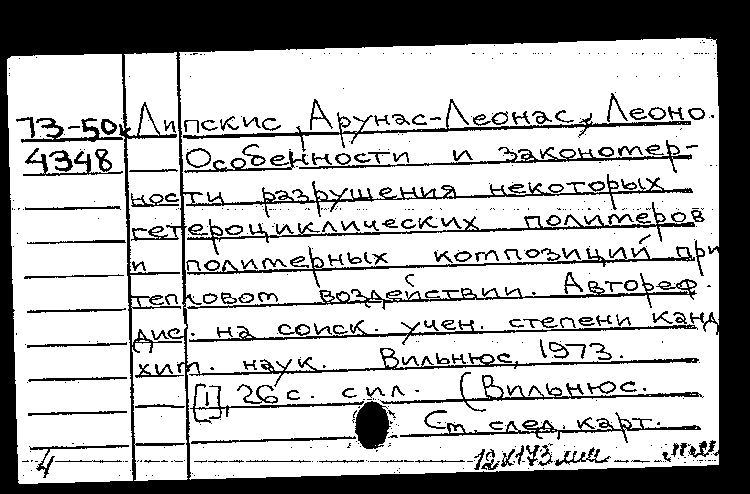 73-50к Липскис, Арунас-Леонас, Леоно.
4348 Особенности и закономер-
ности разрушения некоторых
гетероциклических полимеров
и полимерных композиций при
тепловом воздействии. Автореф.
дис. на соиск. учен. степени канд
хим. наук. Вильнюс, 1973.
[1], 26 с. с ил. (Вильнюс.
См. след. карт.
4 12х173мм